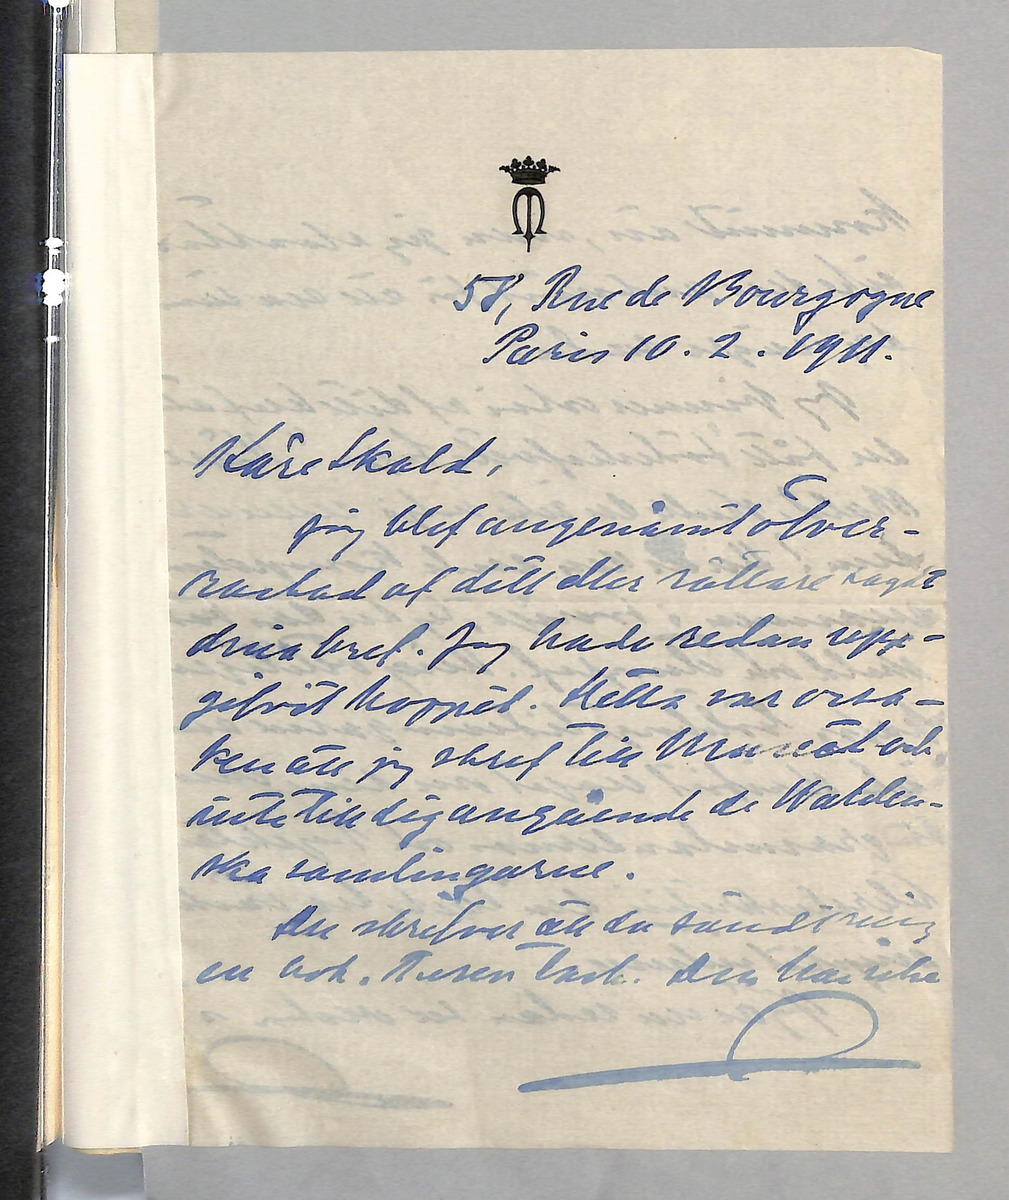 58, Rue de Bourgogne
Paris 10. 2. 1911.
Käre Skald,
jag blef angenämt öfver-
raskad af ditt eller rättare sagdt
dina bref. Jag hade redan upp-
gifvit hoppet. Detta var orsa-
ken att jag skref till Muséet och
inte till dig angående de Wahlen-
ska samlingarne.
Du skrifver att du sändt mig
en bok. Tusen tack. Den har icke